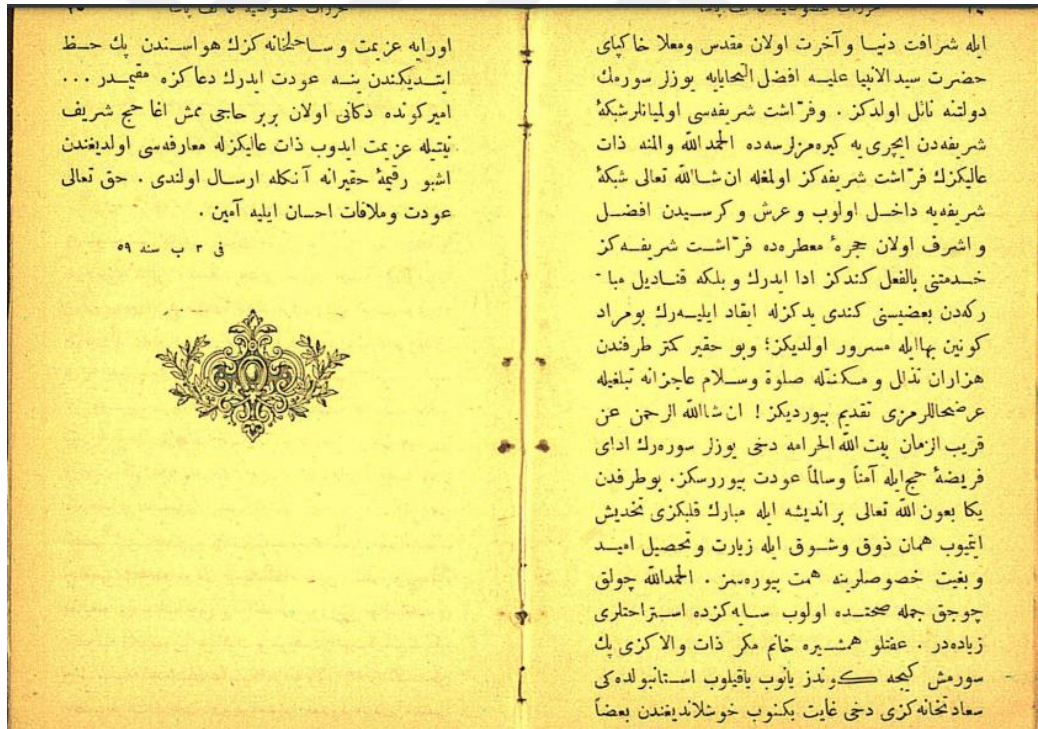 ايله شرافت دنيا و آخرت اولان مقدس ومعلا خاكپاى
حضرت سيد الانبيا عليه افضل التحايايه يوزلر سورمك
دولتنه نائل اولدكز . وفرّاشت شريفه‌سى اولميانلر شبكهٔ
شريفه‌دن ايچرى يه كيره‌مزلرسه‌ده الحمد الله والمنه ذات
عاليكزك فرّاشت شريفه‌كز اولمغله ان شا الله تعالى شبكهٔ
شريفه‌يه داخــل اولوب وعرش وكرســيدن افضــل
و اشرف اولان حجرهٔ معطره‌ده فرّاشــت شريفــه‌كز
خــدمتنى بالفعل كندكز ادا ايدرك و بلكه قنــاديل مبا -
ركه‌دن بعضيسنى كندى يدكزله ايقاد ايليــه‌رك بومراد
كونين بهاايله مسرور اولديكز؛ وبو حقير كمتر طرفندن
هزاران تذلل و مسكنتله صلوة وســلام عاجزانه تبلغيله
عرضحاللرمزى تقديم بيورديكز ! ان شاالله الرحمن عن
قريب الزمان بيت الله الحرامه دخى يوزلر سوره‌رك اداى
فريضهٔ حج ايله آمناً وسالماً عودت بيوررسكز . بوطرفدن
يكا بعون الله تعالى بر انديشه ايله مبارك قلبكزى تخديش
ايتميوب همان ذوق وشــوق ايله زيارت وتحصيل اميــد
و بغيت خصوصلرينه همت بيوره‌سز . الحمدالله چولق
چوجق جمله صحتــده اولوب ســايه‌كزده اســتراحتلرى
زياده‌در . عفتلو همشــيره خانم مكر ذات والاكزى پك
سورمش كيجه كــوندز يانوب ياقيلوب اســتانبولده‌كى
سعادتخانه‌كزى دخى غايت بكنوب خوشلانديغندن بعضاً
اورايه عزيمت و ســاحلخانه كزك هواســندن پك حــظ
ايتــديكندن ينــه عودت ايدرك دعاكزه مقيمــدر ...
اميركونده دكانى اولان بربر حاجى ممش اغا حج شريف
نيتيله عزيمت ايدوب ذات عاليكزله معارفه‌سى اولديغندن
اشبو رقيمهٔ حقيرانه آنكله ارســال اولندى . حق تعالى
عودت وملاقات احسان ايليه آمين .
فى ٣ ب سنه ٥٩